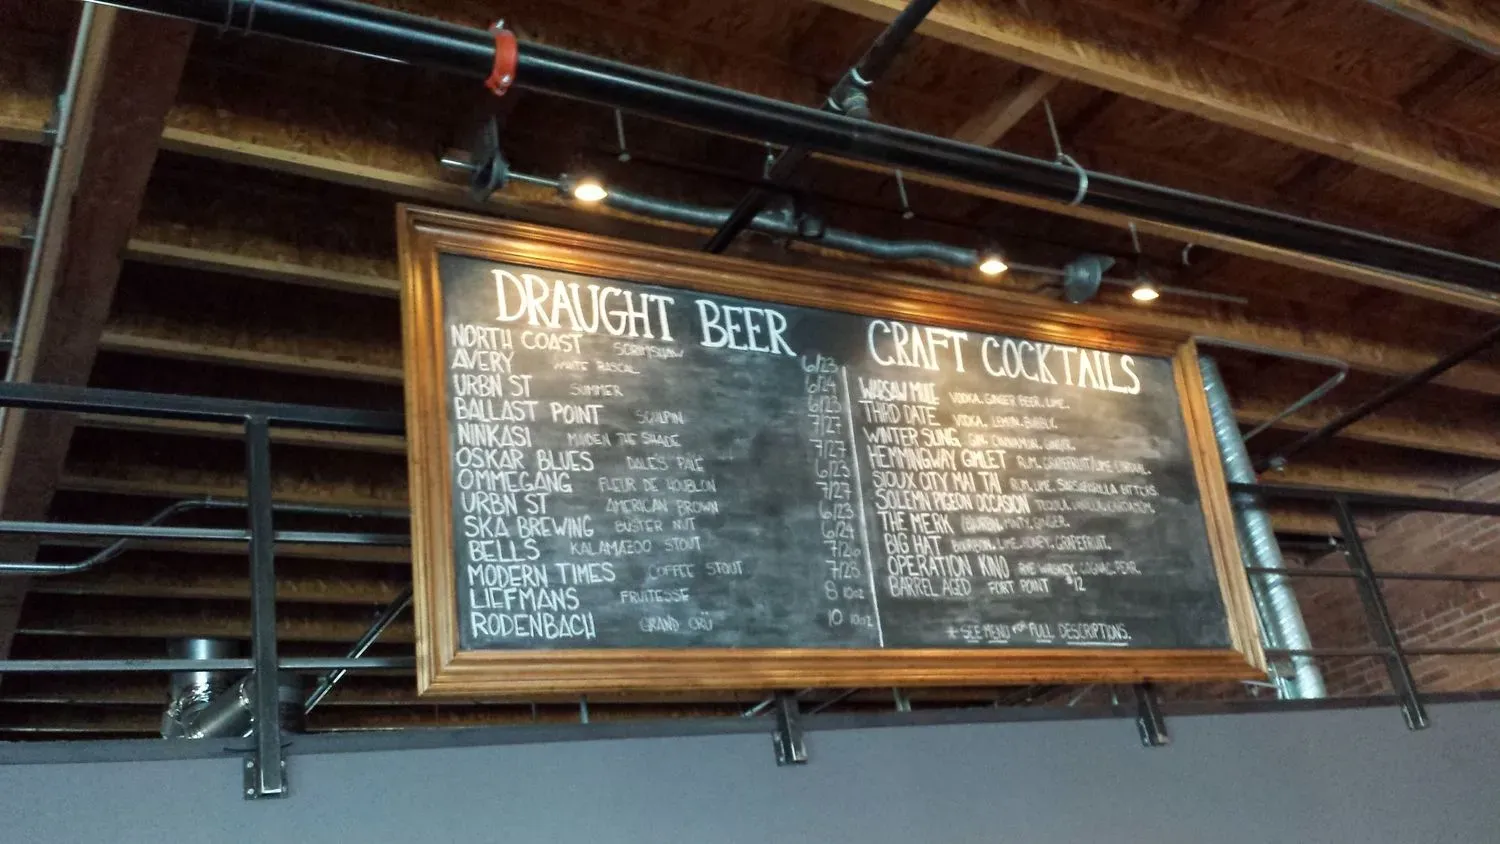 DRAUGHT BEER
NORTH COAST SCRIMSHAW 6/23
AVERY WHITE RASCAL 6/24
URBN ST SUMMER 6/23
BALLAST POINT SCULPIN 7/27
NINKASI MAIDEN THE SHADE 7/27
OSKAR BLUES DALE'S PALE 6/23
OMMEGANG FLEUR DE HOUBLON 7/27
URBN ST AMERICAN BROWN 6/23
SKA BREWING BUSTER NUT 6/24
BELLS KALAMAZOO STOUT 7/26
MODERN TIMES COFFEE STOUT 7/28
LIEFMANS FRUITESSE 8 10oz
RODENBACH GRAND CRÜ 10 10oz
CRAFT COCKTAILS
WARSAW MULE VODKA, GINGER BEER, LIME.
THIRD DATE VODKA, LEMON, BUBBLE.
WINTER SLING GIN, CINNAMON, GINGER.
HEMMINGWAY GIMLET RUM, GRAPEFRUIT/LIME CORDIAL.
SIOUX CITY MAI TAI RUM, LIME, SARSPARILLA BITTERS.
SOLEMN PIGEON OCCASION TEQUILA, VANILLA, CARDAMOM.
THE MERK BOURBON, MINT, GINGER.
BIG HAT BOURBON, LIME, HONEY, GRAPEFRUIT.
OPERATION KINO RYE WHISKEY, COGNAC, PEAR.
BARREL AGED PORT POINT $12
* SEE MENU FOR FULL DESCRIPTIONS.